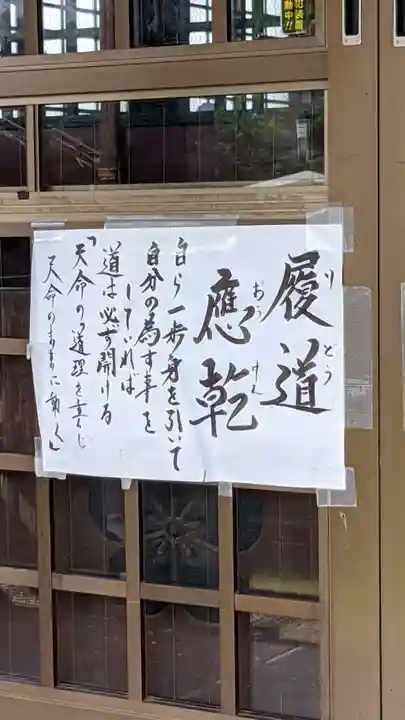 履道
りどう
應乾
おうけん
自ら一歩身を引いて
自分の為す事を
していれば
道は必ず開ける
「天命の道理を重んじ
天命のままに動く」
動中!!